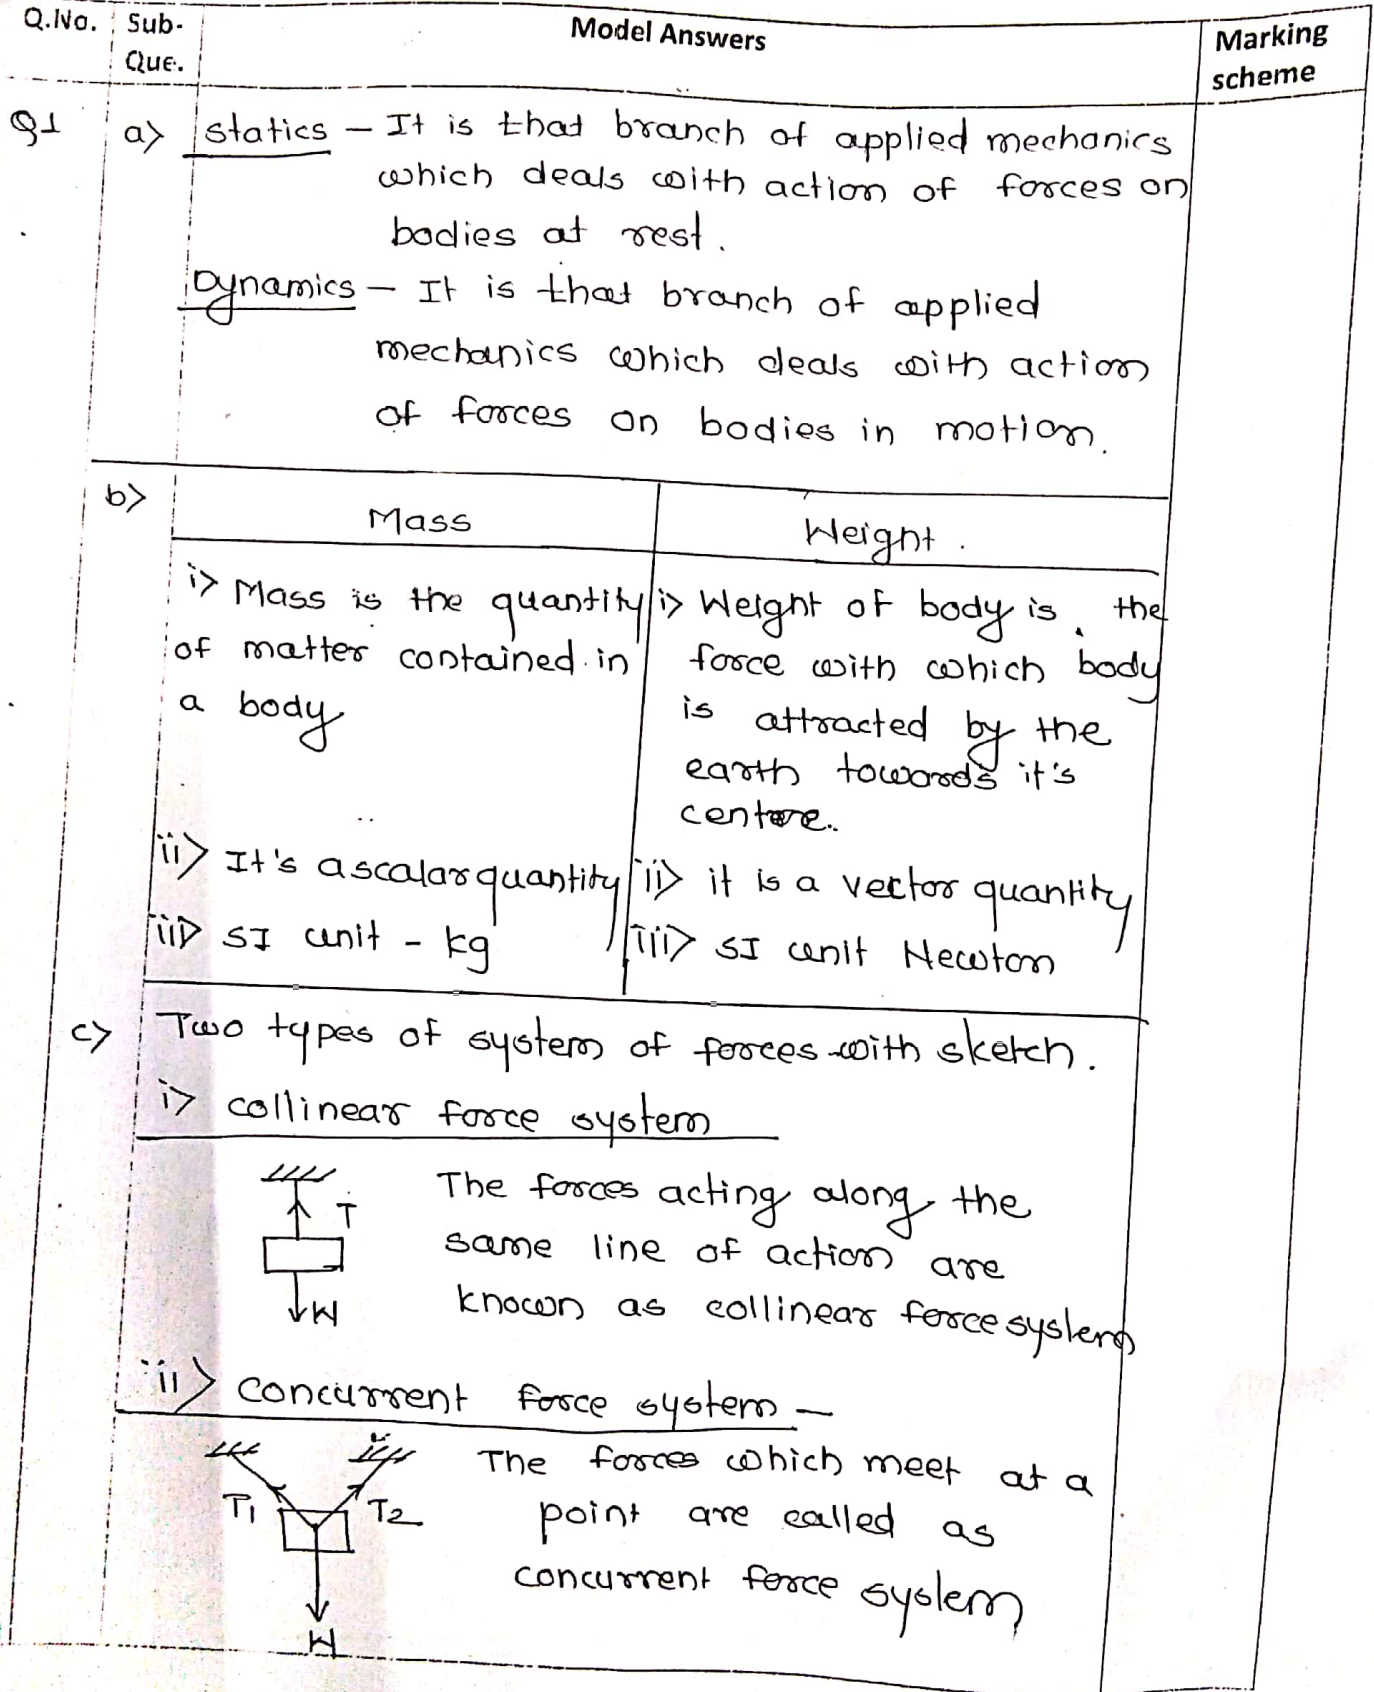 Q.No. Sub-Que. Model Answers Marking scheme
Q1 a) statics – It is that branch of applied mechanics
which deals with action of forces on
bodies at rest.
Dynamics – It is that branch of applied
mechanics which deals with action
of forces on bodies in motion.
b) Mass Weight.
i) Mass is the quantity
of matter contained in
a body
i) Weight of body is the
force with which body
is attracted by the
earth towards it's
centre.
ii) It's a scalar quantity
ii) it is a vector quantity
iii) SI unit - kg
iii) SI unit Newton
c) Two types of system of forces with sketch.
i) collinear force system
T
W
The forces acting along the
same line of action are
known as collinear force system
ii) concurrent force system –
T1 T2
W
The forces which meet at a
point are called as
concurrent force system